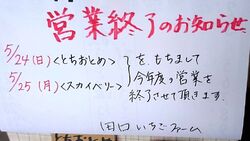 営業終了のお知らせ
5/24(日)<とちおとめ>
5/25(月)<スカイベリー>
をもちまして
今年度の営業を
終了させて頂きます。
田口いちごファーム